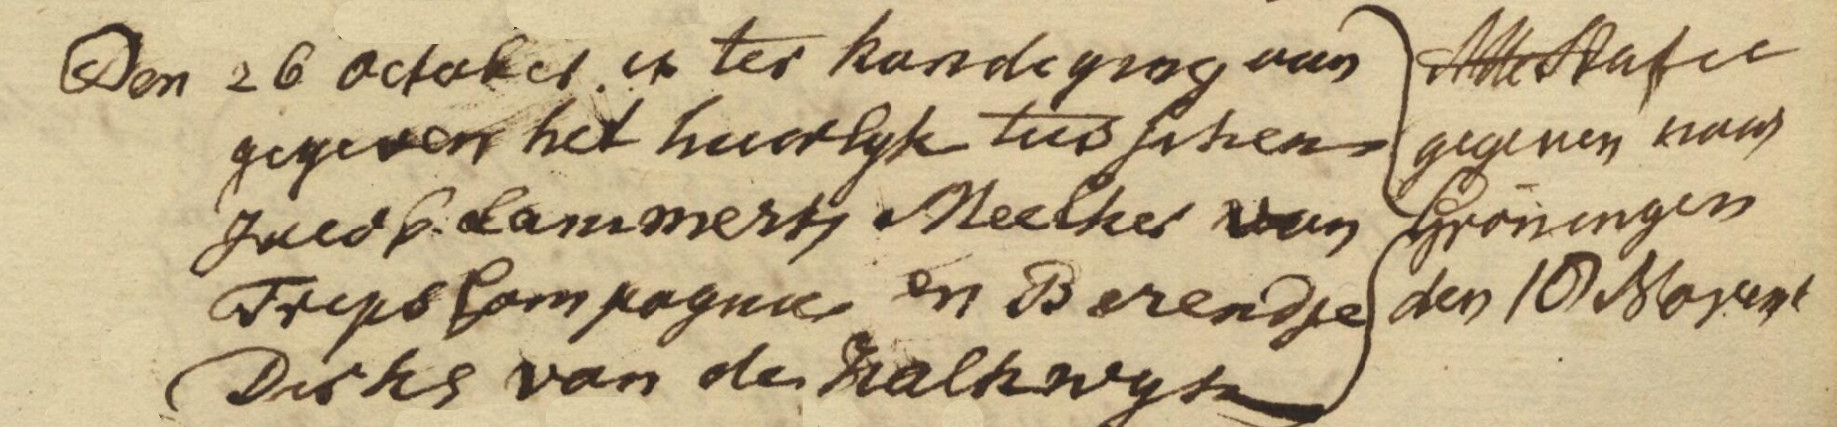 Den 26 october is ter kondiging van
gegeven het huwlyk tusschen
Jacob Lammerts Meelker van
Trips Compagnie en Berendje
Dirks van de Kalkwyk
Attestatie
gegeven naar
Gröningen
den 10 Novemb